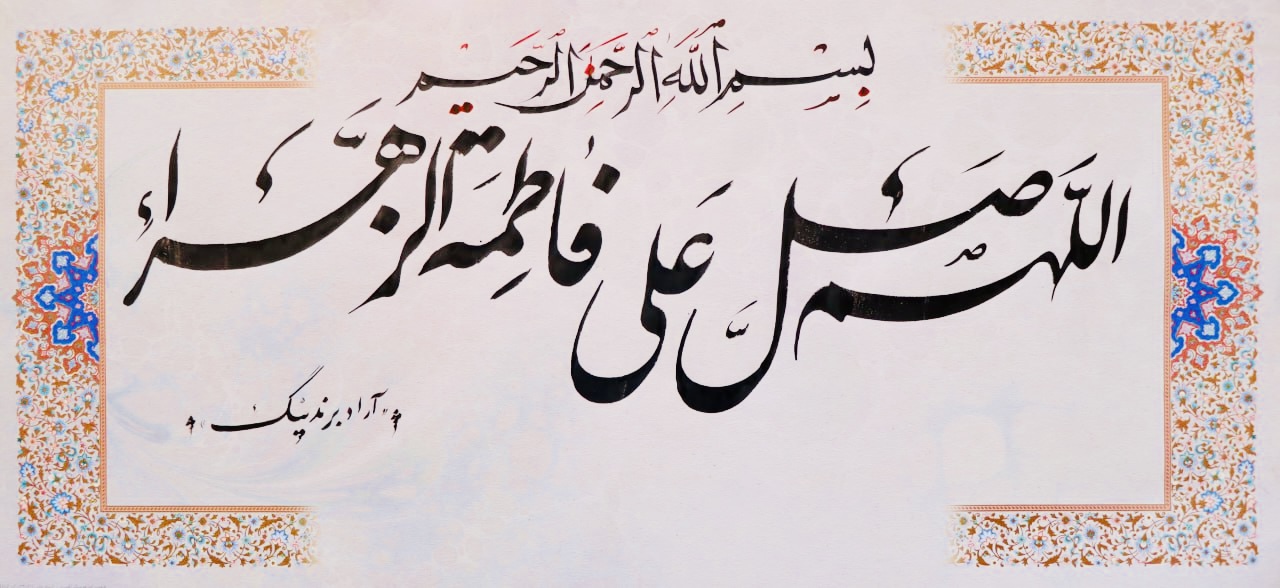 بِسْمِ اللَّهِ الرَّحْمَٰنِ الرَّحِیمِ
اللَّهُمَّ صَلِّ عَلی فاطِمَة الزهَّراء
«آراد برندینگ»